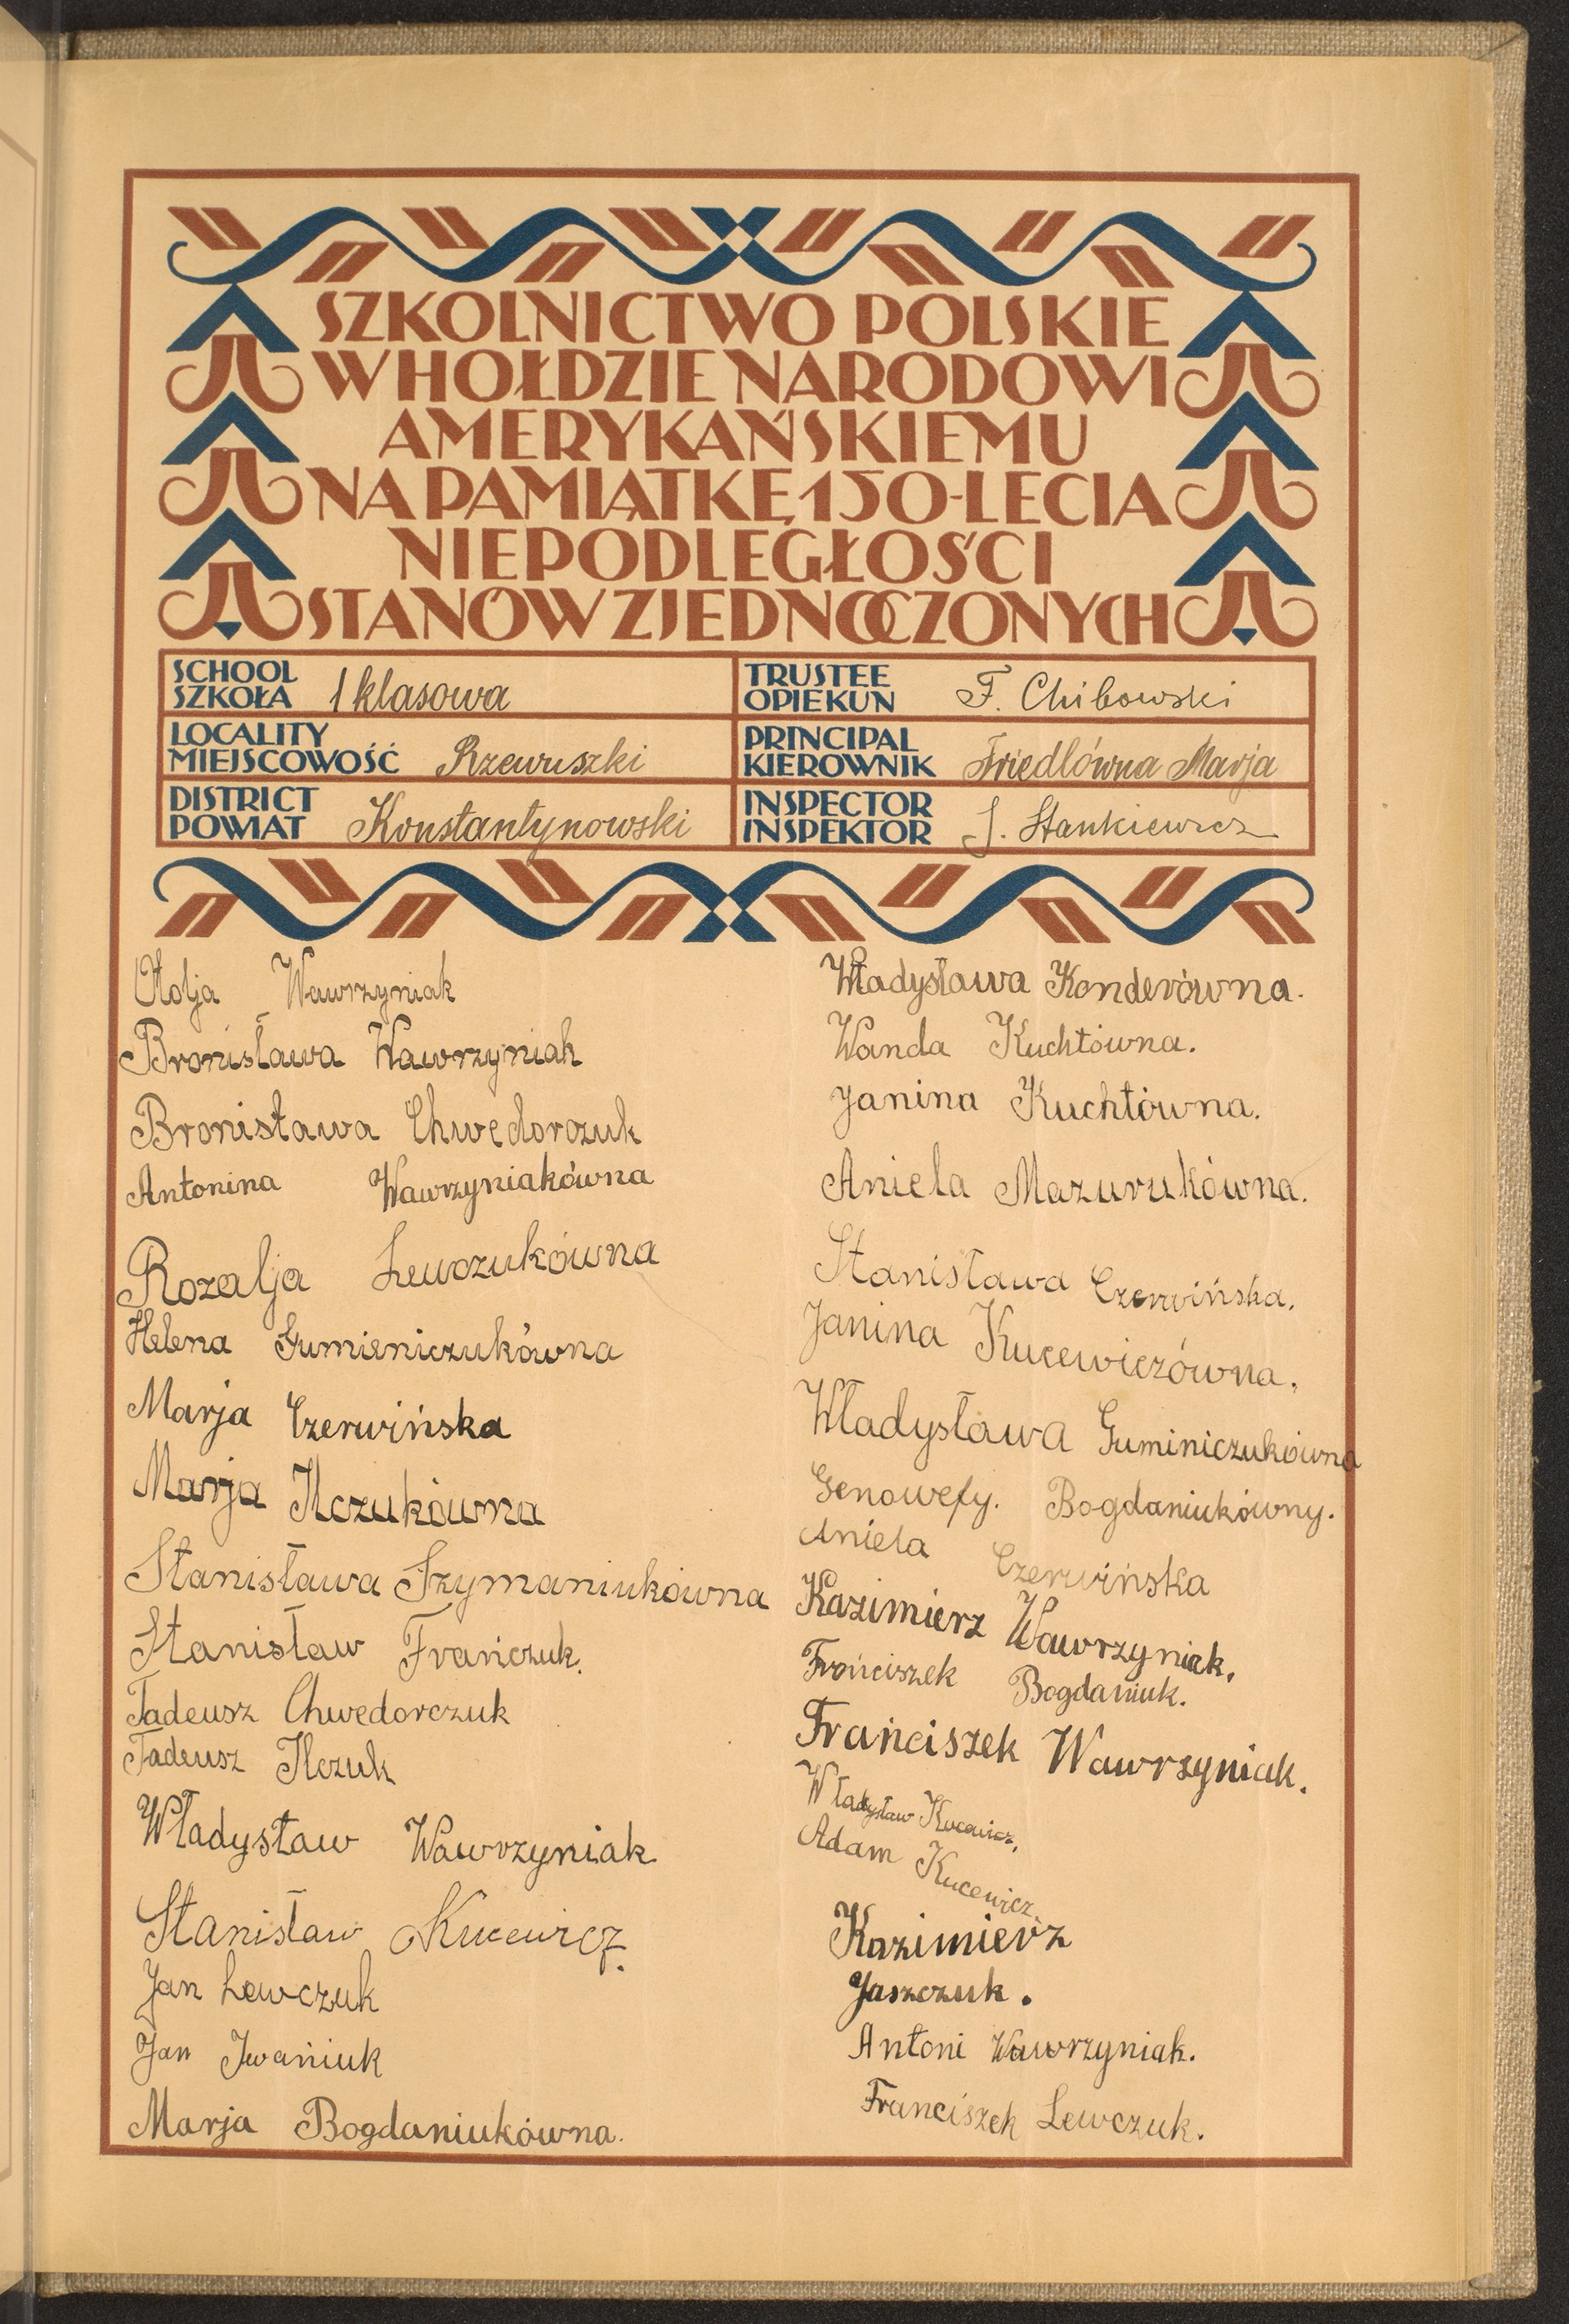 SZKOLNICTWO POLSKIE
W HOŁDZIE NARODOWI
AMERYKAŃSKIEMU
NA PAMIĄTKĘ 150-LECIA
NIEPODLEGŁOŚCI
STANÓW ZJEDNOCZONYCH
SCHOOL
SZKOŁA 1 klasowa
TRUSTEE
OPIEKUN F. Chibowski
LOCALITY
MIEJSCOWOŚĆ Rzewuszki
PRINCIPAL
KIEROWNIK Friedlówna Marja
DISTRICT
POWIAT Konstantynowski
INSPECTOR
INSPEKTOR J. Stankiewicz
Wawrzyniak
Bronisława Wawrzyniak
Bronisława Chwedorczuk
Antonina Wawrzyniakówna
Rozalja Lewczukówna
Helena Gumieniczukówna
Marja Czerwińska
Marja Ilczukówna
Stanisława Szymaniukówna
Stanisław Frańczuk.
Tadeusz Chwedorczuk
Tadeusz Ilczuk
Władysław Wawrzyniak
Stanisław Kucewicz.
Jan Lewczuk
Jan Iwaniuk
Marja Bogdaniukówna.
Władysława Konderówna.
Wanda Kuchtówna.
Janina Kuchtówna.
Aniela Mazurukówna.
Stanisława Czerwińska.
Janina Kucewiczówna.
Władysława Guminiczukówna
Genowefy. Bogdaniukówny.
Aniela Czerwińska
Kazimierz Wawrzyniak.
Frańciszek Bogdaniuk.
Frańciszek Wawrzyniak.
Władysław Kucewicz.
Adam Kucewicz.
Kazimierz
Jaszczuk.
Antoni Wawrzyniak.
Franciszek Lewczuk.